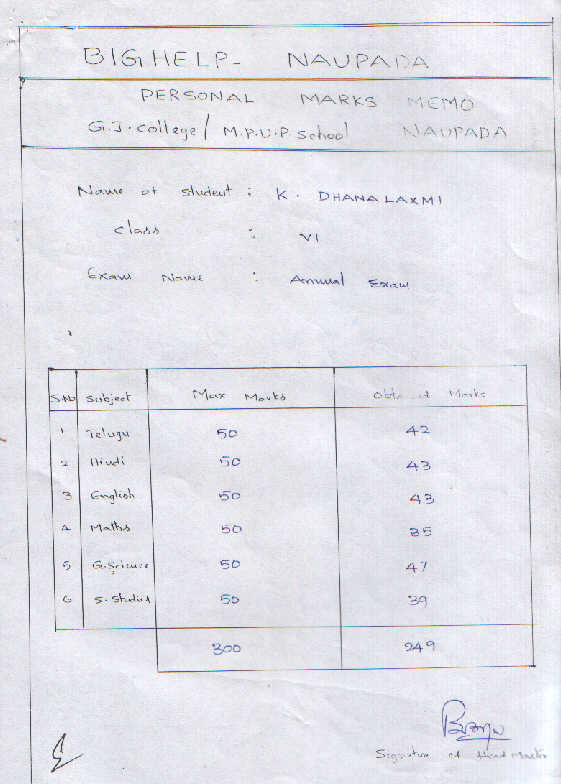 BIGHELP- NAUPADA
PERSONAL MARKS MEMO
G.J.College/ M.P.U.P. School NAUPADA
Name of student : K. DHANALAXMI
Class : VI
Exam Name : Annual Exam
S.No Subject Max Marks Obtained Marks
1 Telugu 50 42
2 Hindi 50 43
3 English 50 43
4 Maths 50 35
5 G.Science 50 47
6 S.Studies 50 39
300 249
Signature of Head Master